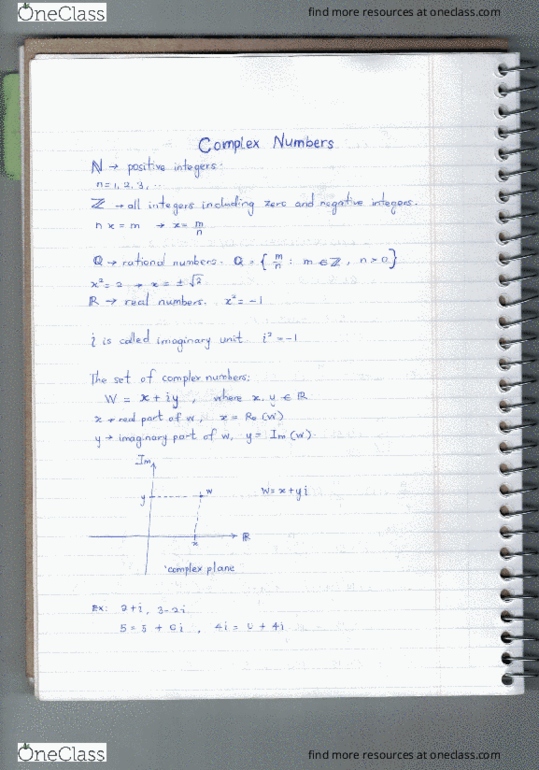 OneClass
find more resources at oneclass.com
Complex Numbers
ℕ → positive integers.
n=1, 2, 3, ...
ℤ → all integers including zero and negative integers.
nx = m → x = m/n
ℚ → rational numbers. ℚ = { m/n : m ∈ ℤ, n > 0 }
x² = 2 → x = ± √2
ℝ → real numbers. x² = -1
i is called imaginary unit i² = -1
The set of complex numbers:
W = x + iy , where x, y ∈ ℝ
x → real part of w, x = Re (w)
y → imaginary part of w, y = Im (w).
Im
y w W = x + yi
x ℝ
'complex plane'
Ex: 2+i, 3-2i
5 = 5 + 0i , 4i = 0 + 4i
OneClass
find more resources at oneclass.com